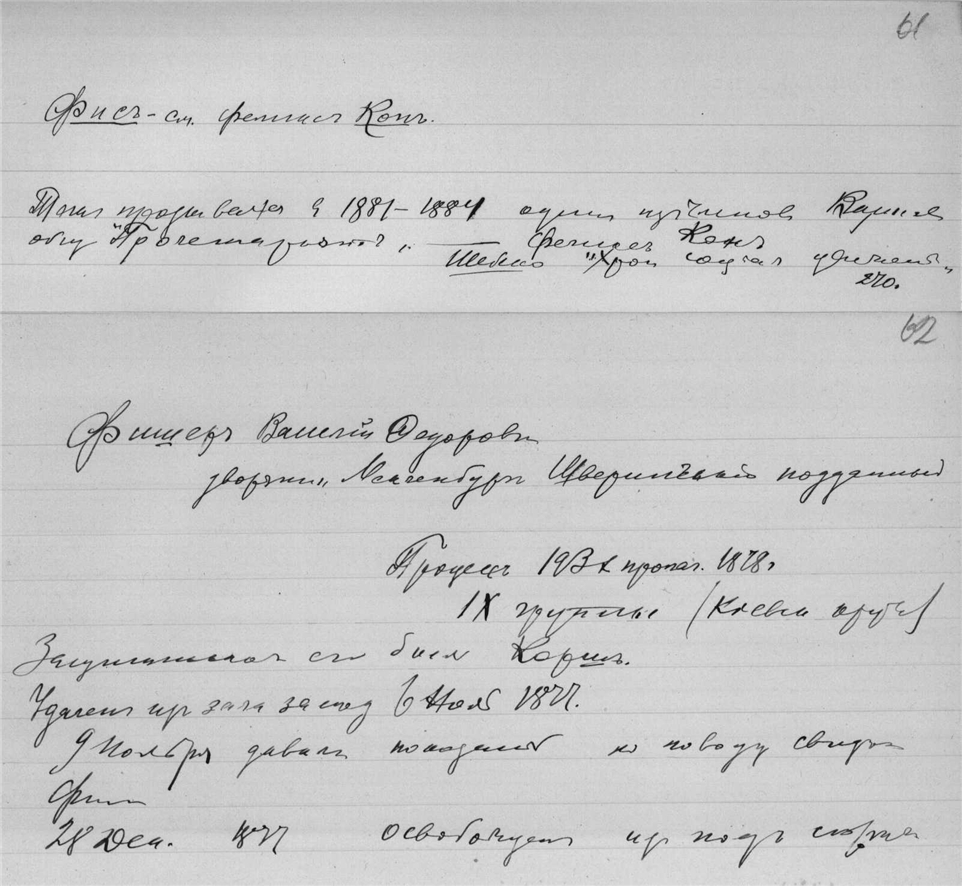 61
Фисъ - см. Феликсъ Конъ.
Такъ прозывался в 1881-1884 один из членов Варшав
общ "Пролетаріатъ" — Феликсъ Конъ
Шебеко "Хрон соціал движенія"
270.
62
Фишеръ Василій Федорови
дворянин, Мекленбургъ Шверинскій подданный
Процессъ 193х пропаг. 1878г
IX группы (Кіевск кружк)
Защитникомъ его был Коршъ.
Удаленъ из зала засед 6 Нояб 1877.
9 Ноября давалъ показаніе по поводу свидѣт
28 Дек. 1877 освобожденъ из подъ стражи